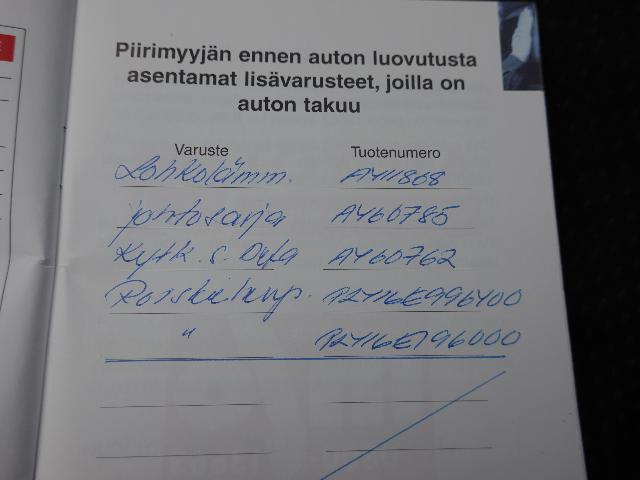 Piirimyyjän ennen auton luovutusta
asentamat lisävarusteet, joilla on
auton takuu
Varuste Tuotenumero
Lohkolämm. AY11808
johtosarja AY60785
Kytk. s. Defa AY60762
Roiskeläpp.
"